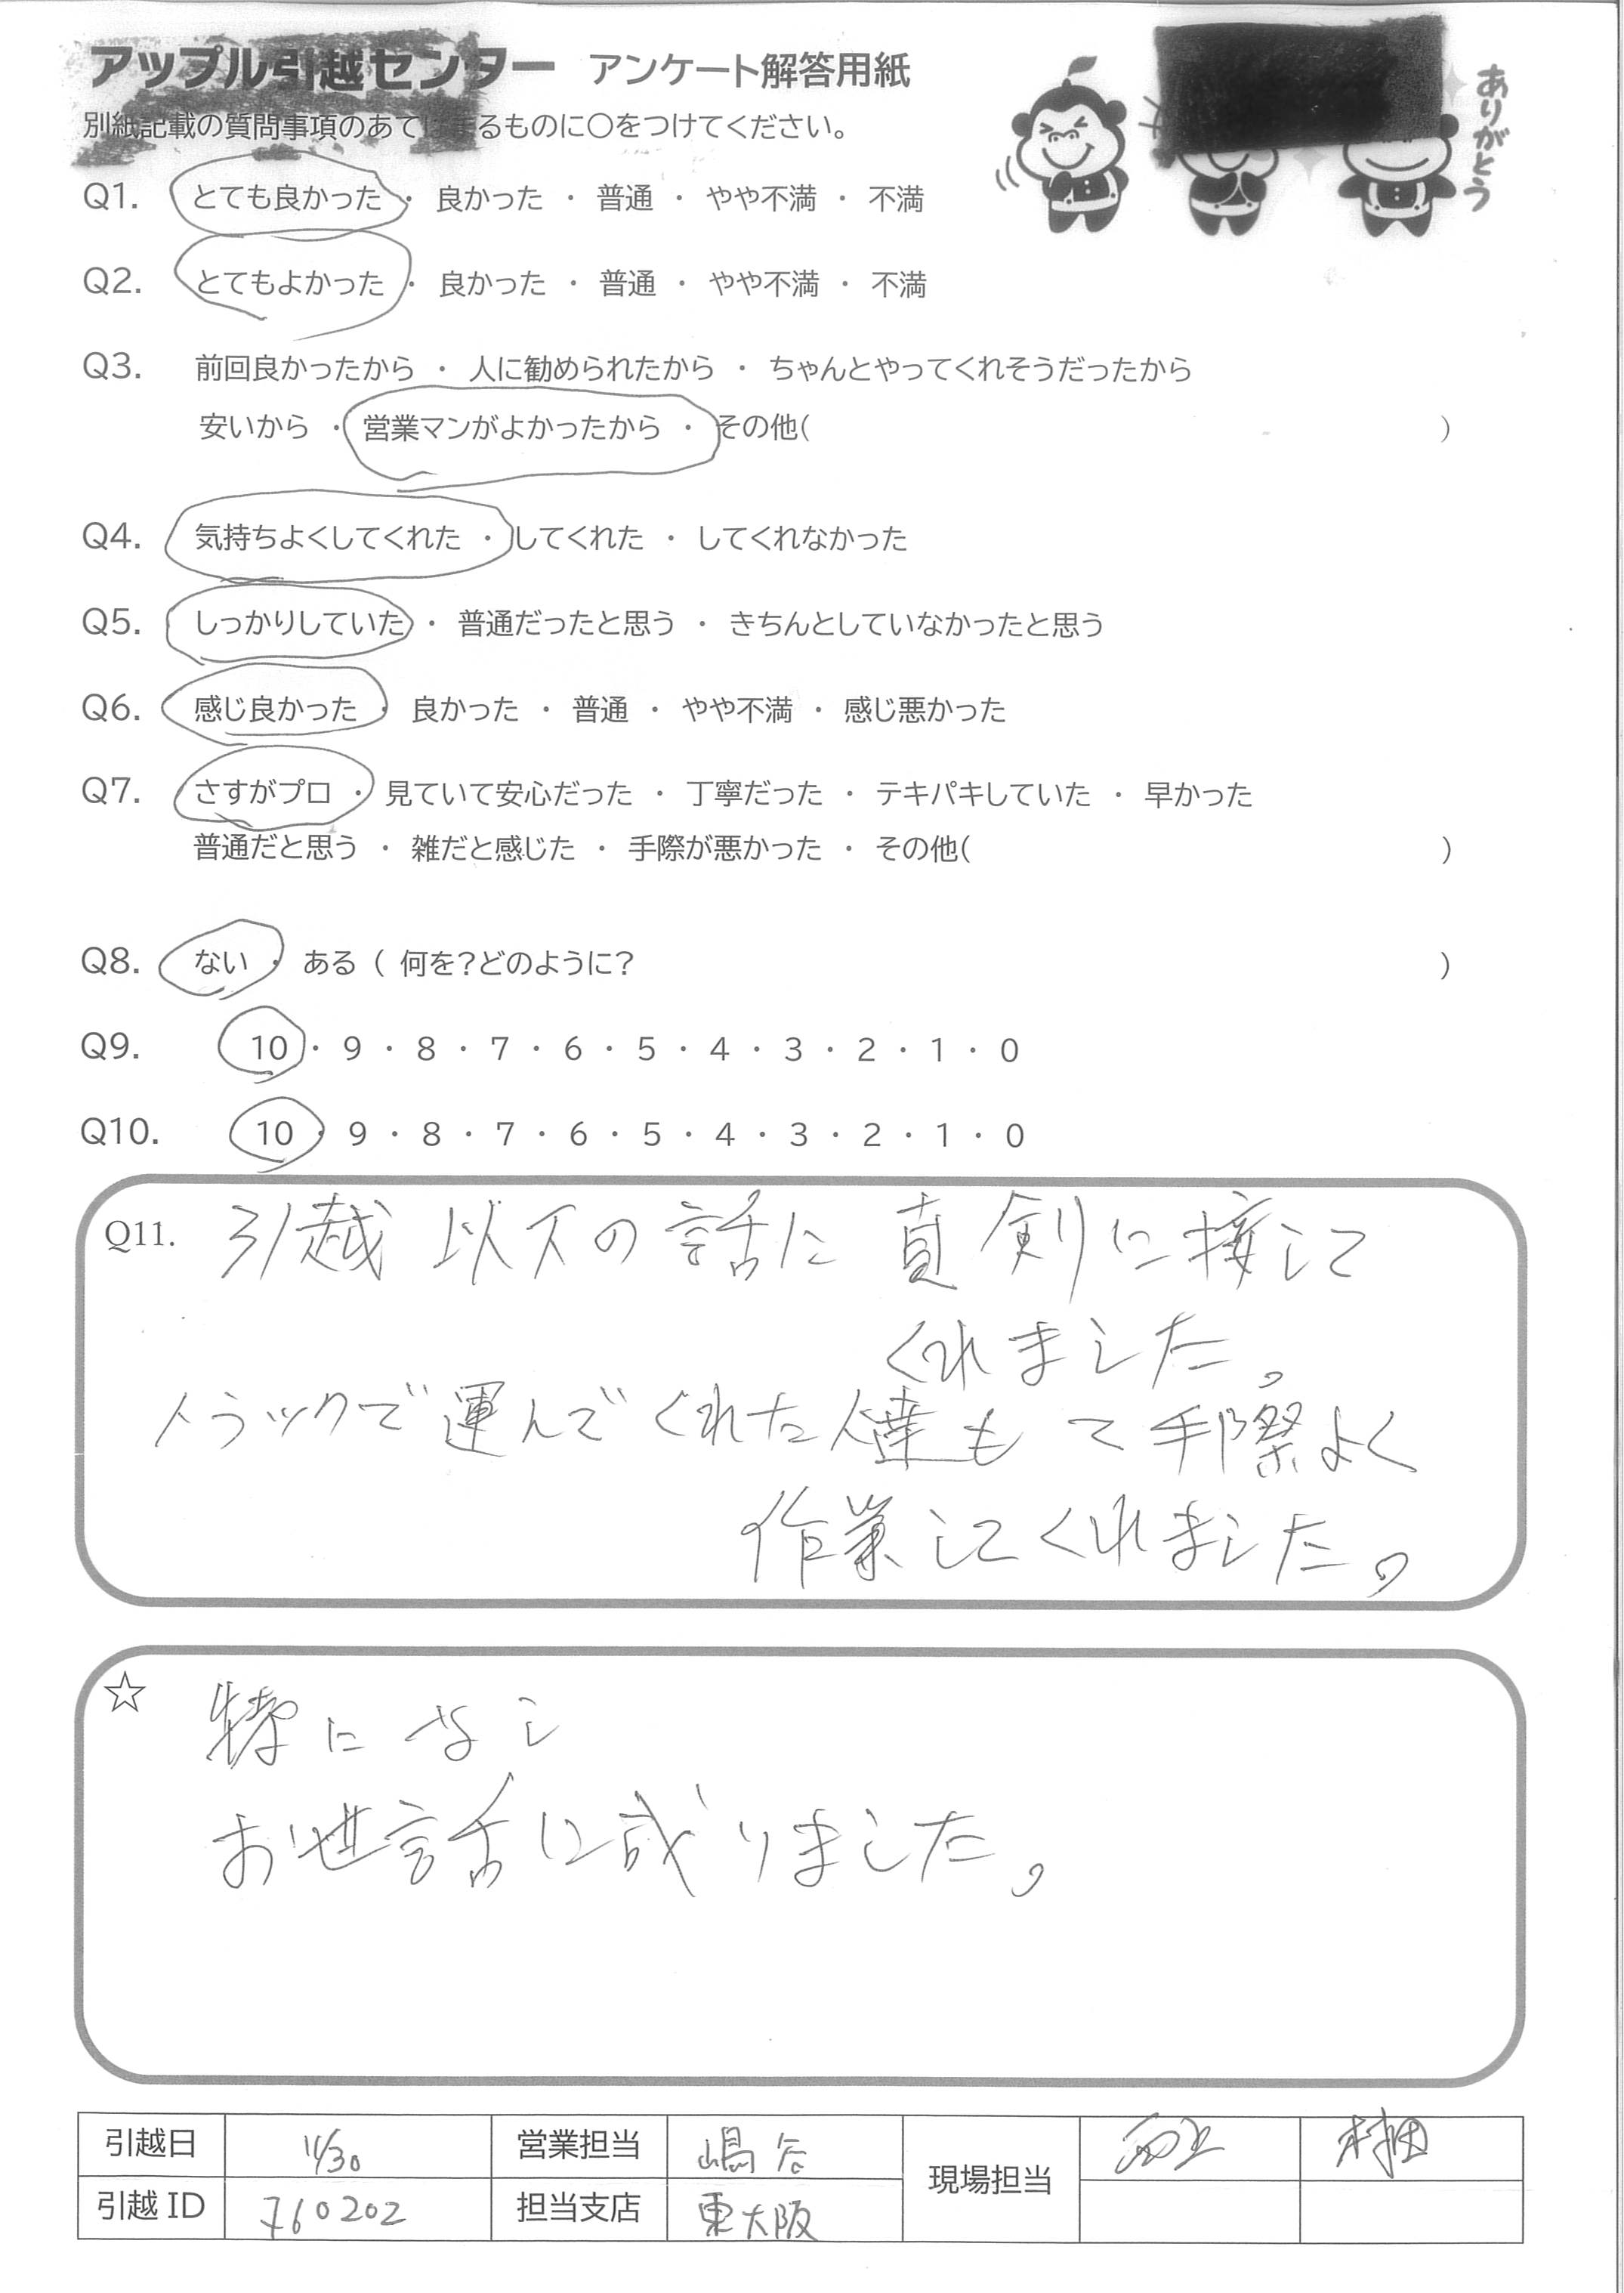 アップル引越センター アンケート解答用紙
ありがとう
別紙記載の質問事項のあてはまるものに○をつけてください。
Q1. とても良かった ・ 良かった ・ 普通 ・ やや不満 ・ 不満
Q2. とてもよかった ・ 良かった ・ 普通 ・ やや不満 ・ 不満
Q3. 前回良かったから ・ 人に勧められたから ・ ちゃんとやってくれそうだったから
安いから ・ 営業マンがよかったから ・ その他( )
Q4. 気持ちよくしてくれた ・ してくれた ・ してくれなかった
Q5. しっかりしていた ・ 普通だったと思う ・ きちんとしていなかったと思う
Q6. 感じ良かった ・ 良かった ・ 普通 ・ やや不満 ・ 感じ悪かった
Q7. さすがプロ ・ 見ていて安心だった ・ 丁寧だった ・ テキパキしていた ・ 早かった
普通だと思う ・ 雑だと感じた ・ 手際が悪かった ・ その他( )
Q8. ない ・ ある ( 何を?どのように? )
Q9. 10 ・ 9 ・ 8 ・ 7 ・ 6 ・ 5 ・ 4 ・ 3 ・ 2 ・ 1 ・ 0
Q10. 10 ・ 9 ・ 8 ・ 7 ・ 6 ・ 5 ・ 4 ・ 3 ・ 2 ・ 1 ・ 0
Q11. 引越 以下の 話に 真剣に接して
くれました。
トラックで運んでくれた人達も て手際よく
作業してくれました。
☆ 特になし
お世話に成りました。
引越日 11/30 営業担当 嶋谷 現場担当 村田
引越ID 760202 担当支店 東大阪